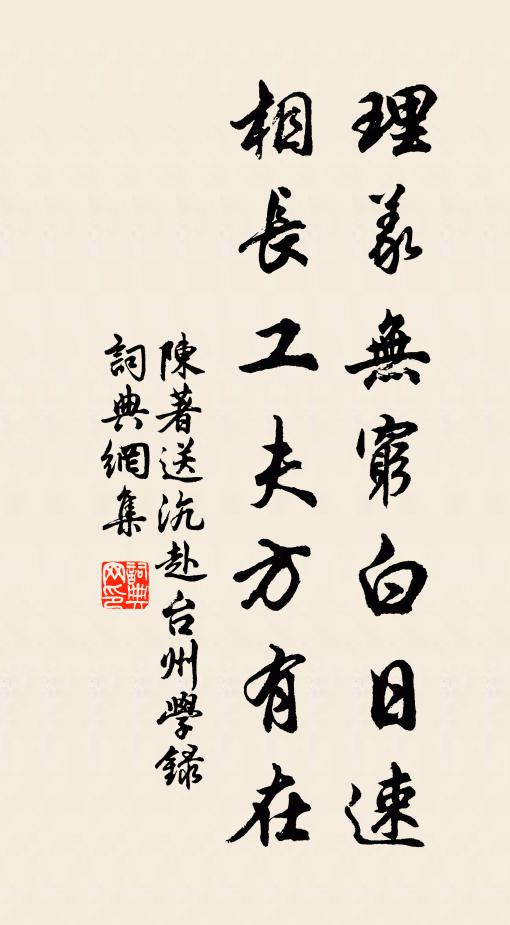 理義無窮白日速
相長工夫方有在
陳著送沇赴台州學錄
詞典網集
詞典網印